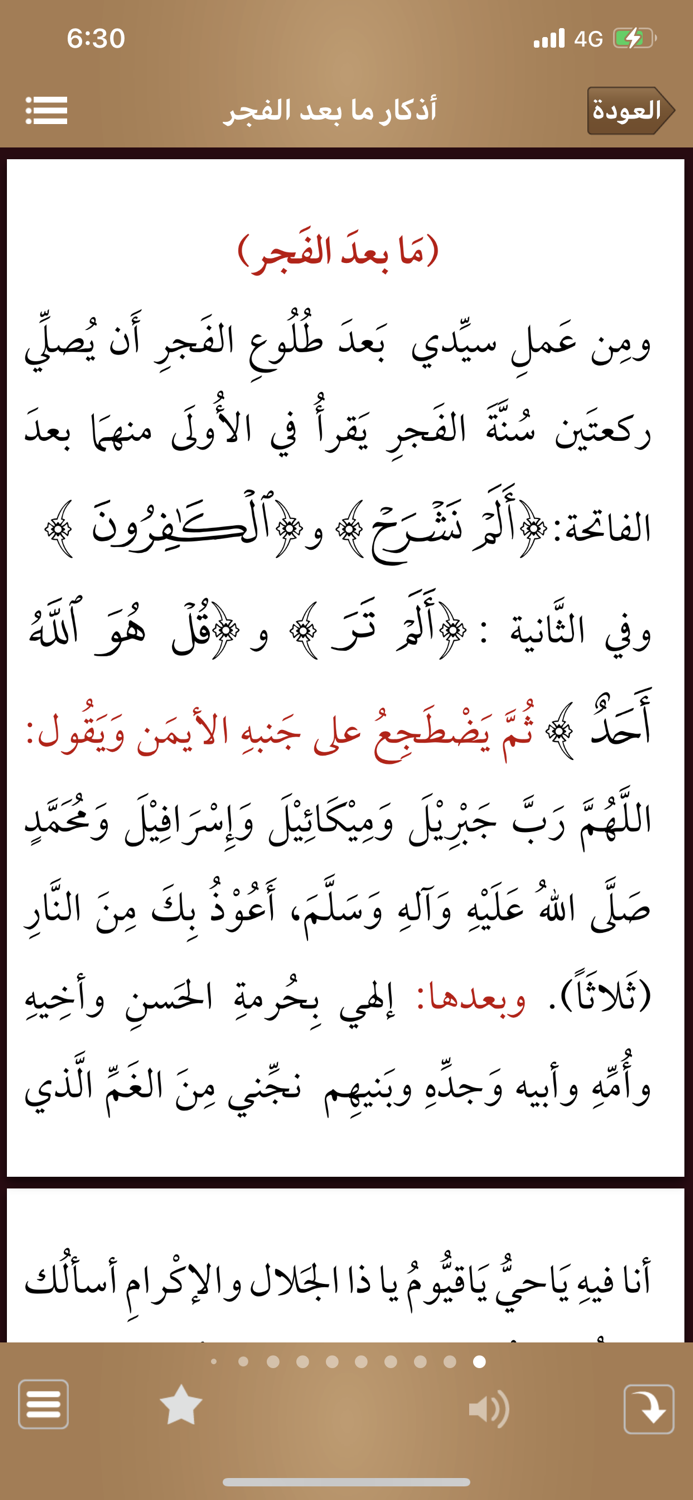 6:30
4G
العودة
أذكار ما بعد الفجر
(مَا بعدَ الفَجر)
ومِن عَملِ سيِّدي بَعدَ طُلُوعِ الفَجرِ أَن يُصلِّي
ركعتَين سُنَّةَ الفَجرِ يَقرأُ في الأُولَى منهمَا بعدَ
الفاتحة: ﴿أَلَمۡ نَشۡرَحۡ﴾ و﴿ٱلۡكَٰفِرُونَ ﴾
وفي الثَّانية : ﴿أَلَمۡ تَرَ ﴾ و ﴿قُلۡ هُوَ ٱللَّهُ
أَحَدٌ ﴾ ثُمَّ يَضْطَجِعُ على جَنبهِ الأيمَن وَيَقُول:
اللَّهُمَّ رَبَّ جَبْرِيْلَ وَمِيْكَائِيْلَ وَإِسْرَافِيْلَ وَمُحَمَّدٍ
صَلَّى اللهُ عَلَيْهِ وَآلهِ وَسَلَّمَ، أَعُوْذُ بِكَ مِنَ النَّارِ
(ثَلاثَاً). وبعدها: إلهي بِحُرمةِ الحَسنِ وأخِيهِ
وأُمِّهِ وأبيه وَجدِّهِ وبَنيهِم نجِّني مِنَ الغَمِّ الَّذي
أنا فيهِ يَاحيُّ يَاقيُّومُ يا ذا الجَلال والإكْرامِ أسألُك